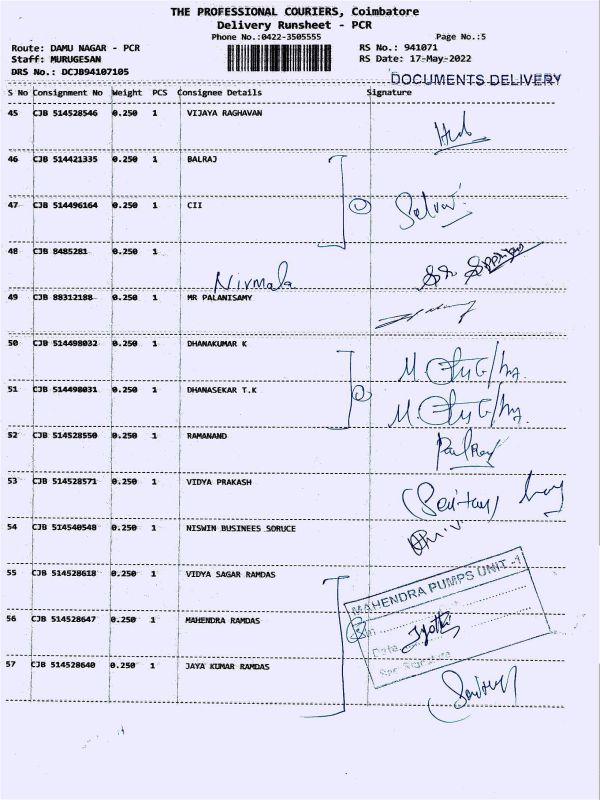 THE PROFESSIONAL COURIERS, Coimbatore
Delivery Runsheet - PCR
Phone No.:0422-3505555
Page No.:5
Route: DAMU NAGAR - PCR
RS No.: 941071
Staff: MURUGESAN
RS Date: 17-May-2022
DRS No.: DCJB94107105
DOCUMENTS DELIVERY
S No Consignment No Weight PCS Consignee Details Signature
45 CJB 514528546 0.250 1 VIJAYA RAGHAVAN
46 CJB 514421335 0.250 1 BALRAJ
47 CJB 514496164 0.250 1 CII
Selvar.
48 CJB 8485281 0.250 1
Nirmala
49 CJB 88312188 0.250 1 MR PALANISAMY
50 CJB 514498032 0.250 1 DHANAKUMAR K
51 CJB 514498031 0.250 1 DHANASEKAR T.K
52 CJB 514528550 0.250 1 RAMANAND
53 CJB 514528571 0.250 1 VIDYA PRAKASH
54 CJB 514540548 0.250 1 NISWIN BUSINEES SORUCE
55 CJB 514528618 0.250 1 VIDYA SAGAR RAMDAS
MAHENDRA PUMPS UNIT -1
56 CJB 514528647 0.250 1 MAHENDRA RAMDAS
Jyothi
Date
Signature
57 CJB 514528640 0.250 1 JAYA KUMAR RAMDAS